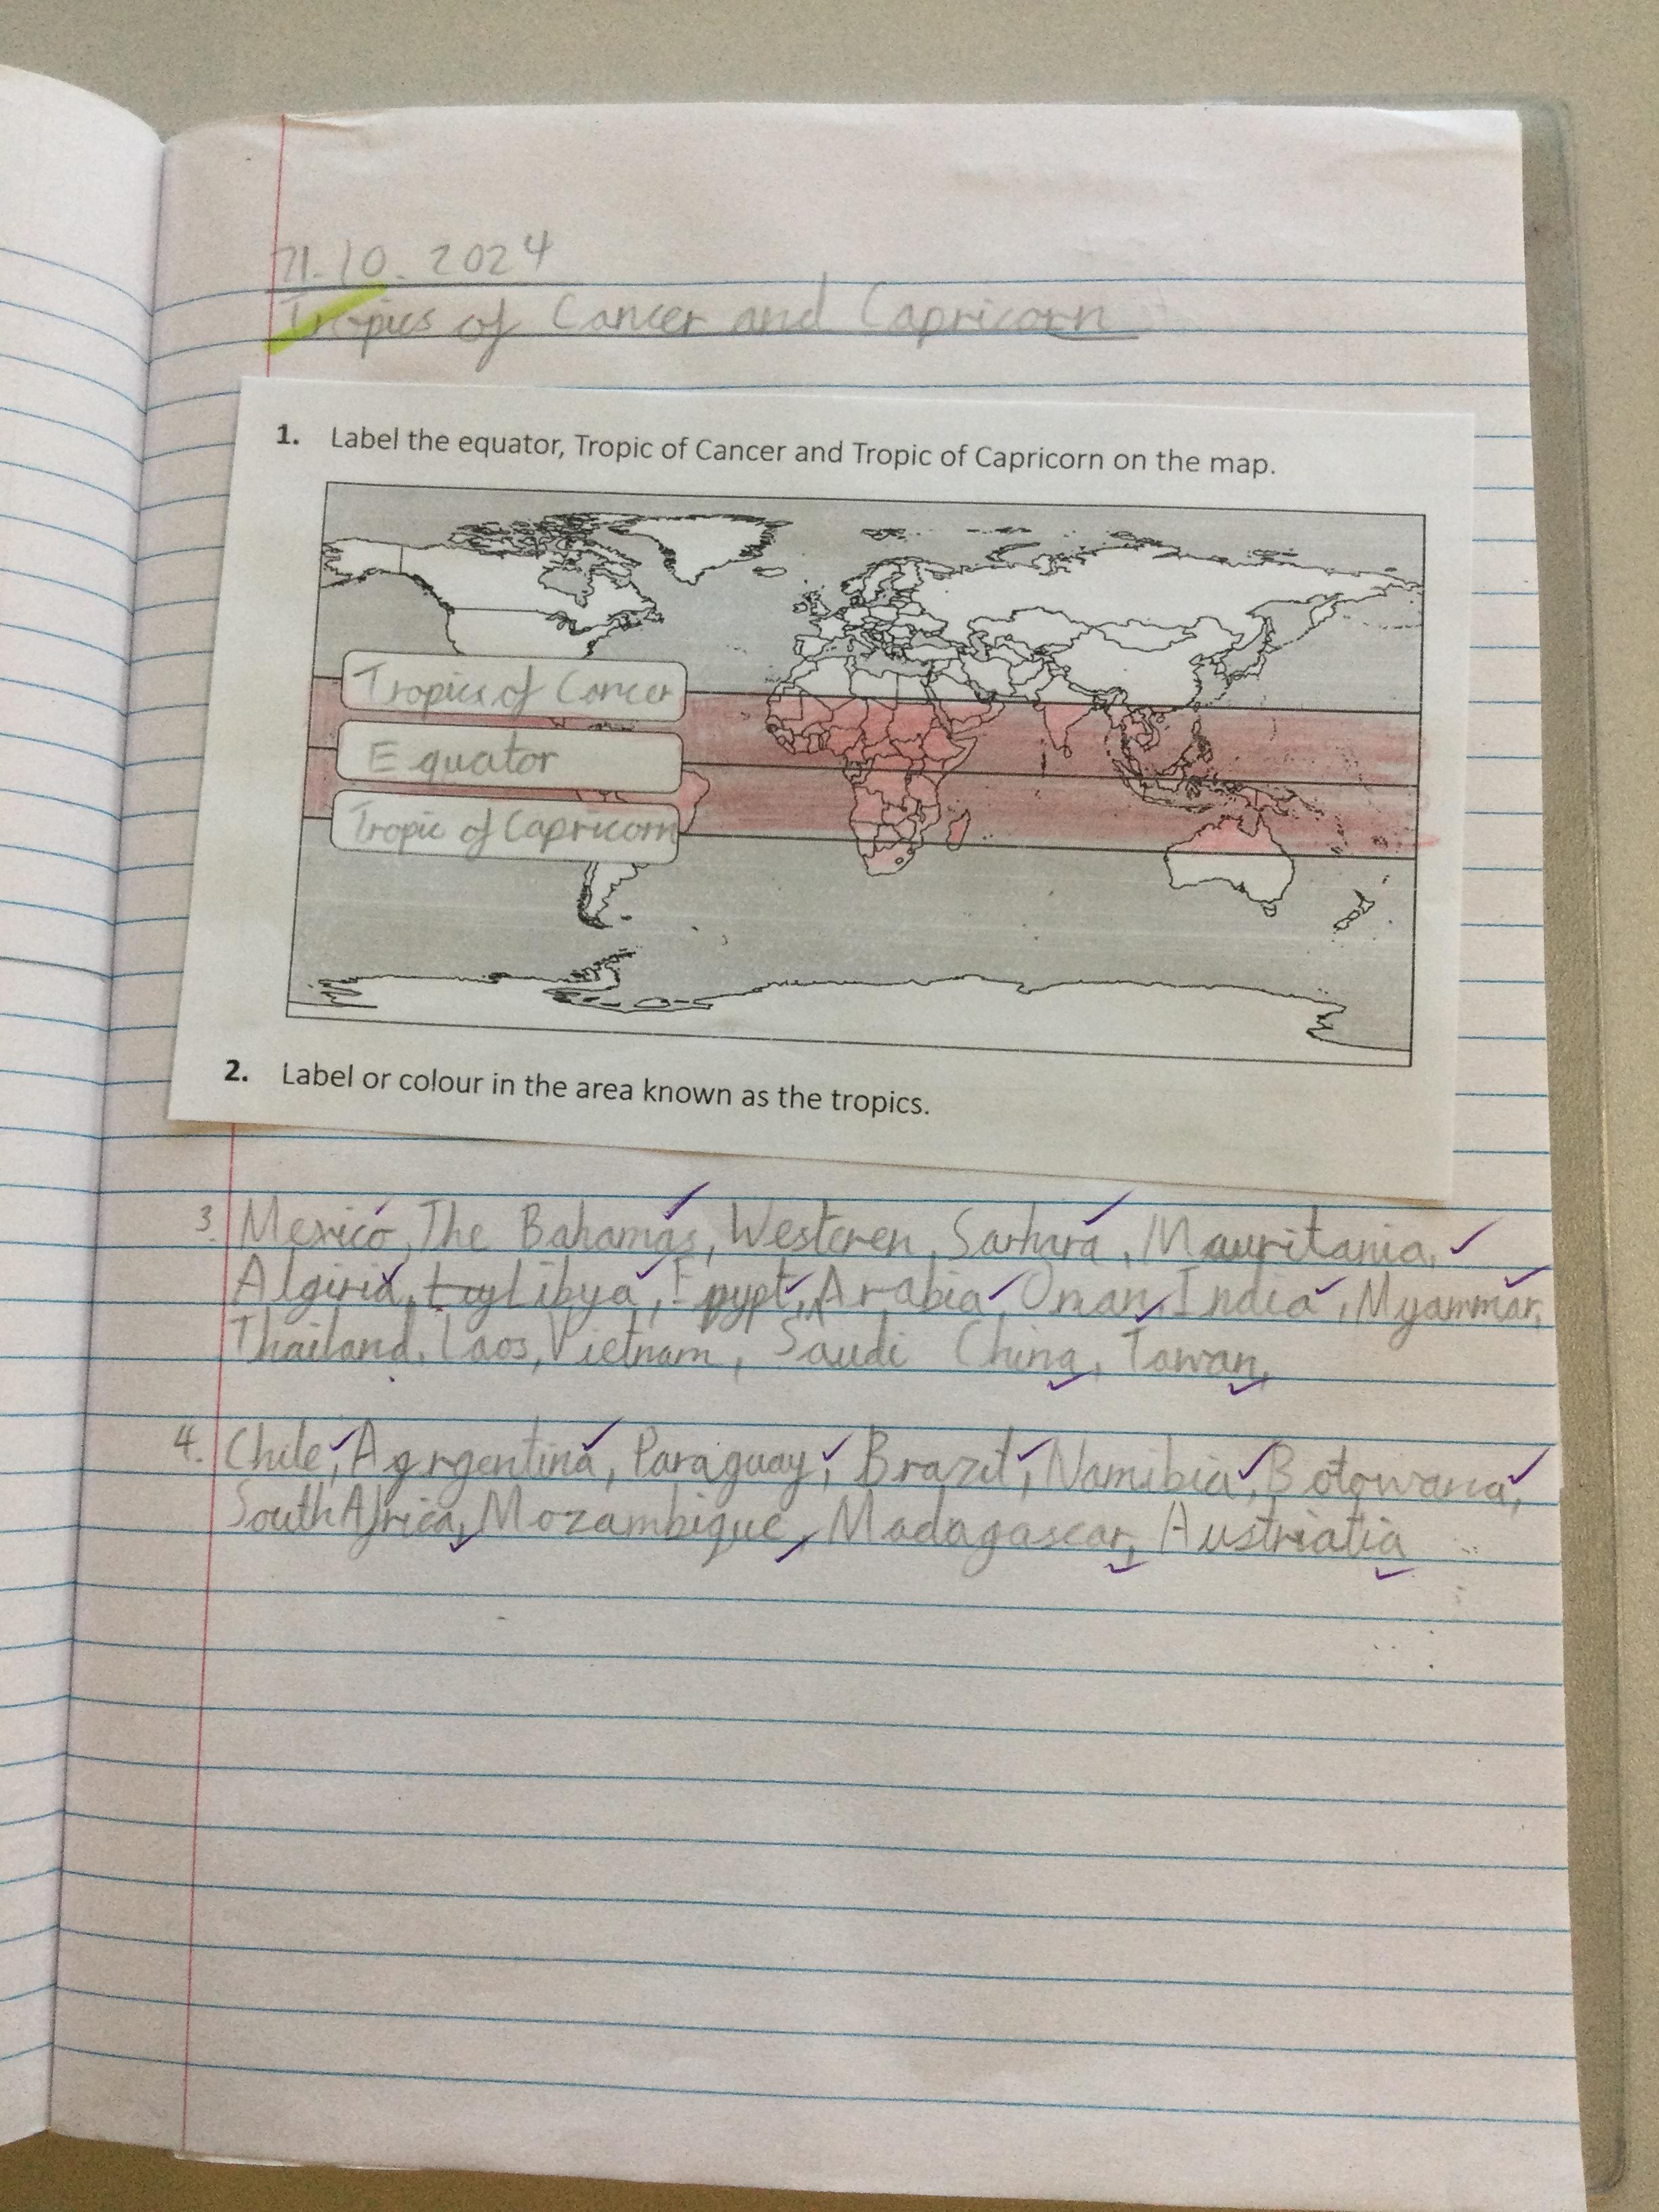 21.10.2024
Tropics of Cancer and Capricorn
1. Label the equator, Tropic of Cancer and Tropic of Capricorn on the map.
Tropics of Cancer
Equator
Tropic of Capricorn
2. Label or colour in the area known as the tropics.
3. Mexico, The Bahamas, Westeren, Sarhara, Mauritania,
Algiria, Libya, Egypt, Arabia, Oman, India, Myammar,
Thailand, Laos, Vietnam, Saudi China, Tawan,
4. Chile, Agrgentina, Paraguay, Brazil, Namibia, Botowana,
South Africa, Mozambique, Madagascar, Austriatia